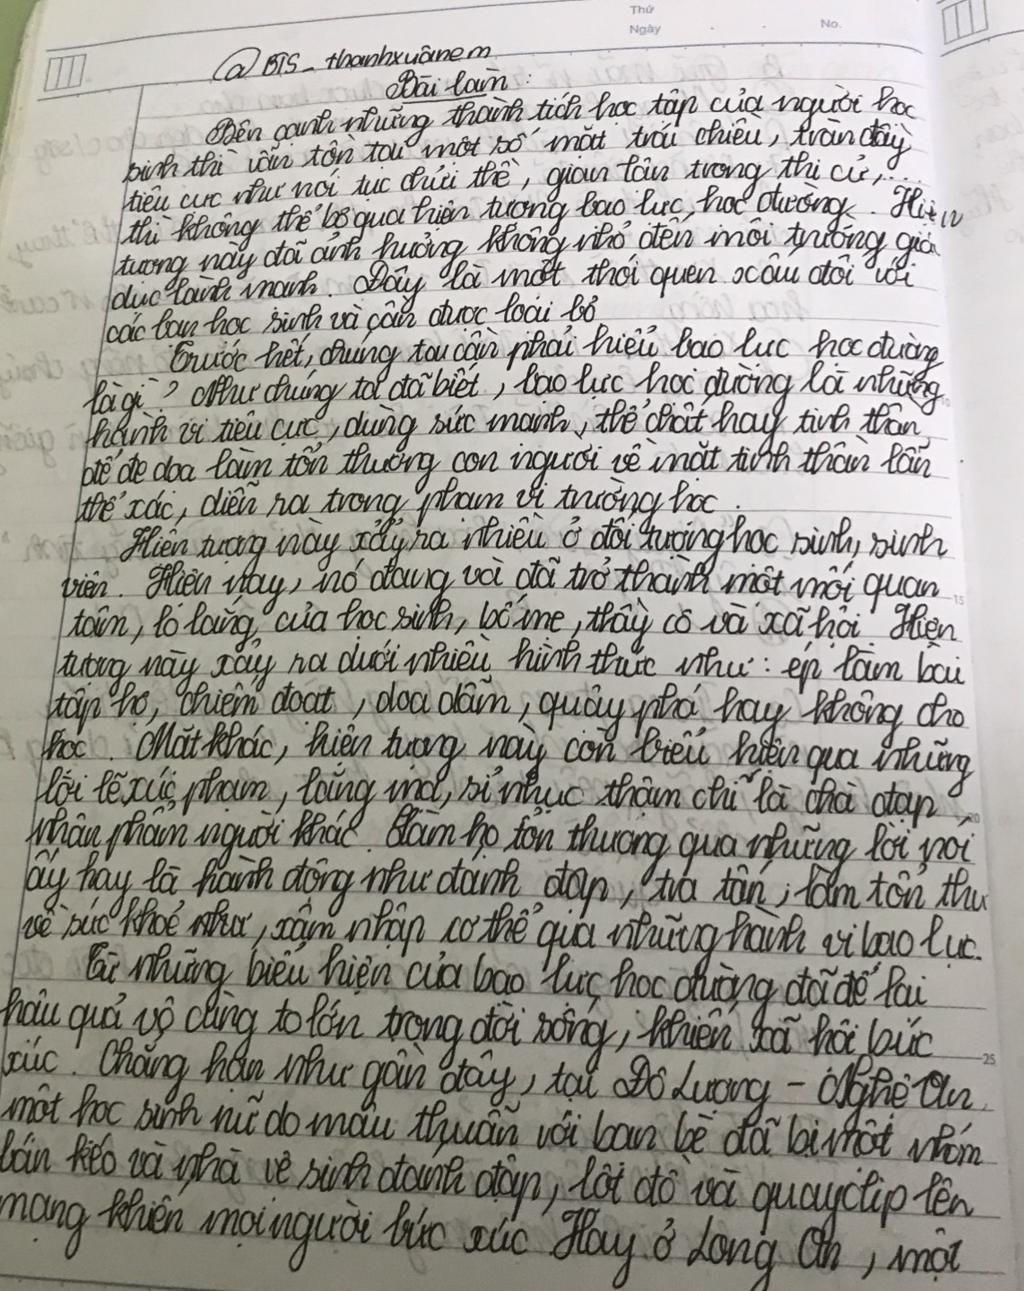 Thứ
Ngày
No.
@BTS_thanhxuânem
Bài làm:
Bên cạnh những thành tích học tập của người học
sinh thì vẫn tồn tại một số mặt trái chiều, tràn đầy
tiêu cực như nói tục chửi thề, gian lận trong thi cử,...
thì không thể bỏ qua hiện tượng bạo lực học đường. Hiện
tượng này đã ảnh hưởng không nhỏ đến môi trường giáo
dục lành mạnh. Đây là một thói quen xấu đối với
các bạn học sinh và cần được loại bỏ
Trước hết, chúng ta cần phải hiểu bạo lực học đường
là gì? Như chúng ta đã biết, bạo lực học đường là những
hành vi tiêu cực, dùng sức mạnh, thể chất hay tinh thần
để đe dọa làm tổn thương con người về mặt tinh thần lẫn
thể xác, diễn ra trong phạm vi trường học.
Hiện tượng này xảy ra nhiều ở đối tượng học sinh, sinh
viên. Hiện nay, nó đang và đã trở thành một mối quan
tâm, lo lắng của học sinh, bố mẹ, thầy cô và xã hội Hiện
tượng này xảy ra dưới nhiều hình thức như: ép làm bài
tập hộ, chiếm đoạt, dọa dẫm, quậy phá hay không cho
học. Mặt khác, hiện tượng này còn biểu hiện qua những
lời lẽ xúc phạm, lăng mạ, sỉ nhục thậm chí là chà đạp
nhân phẩm người khác. Làm họ tổn thương qua những lời nói
ấy hay là hành động như đánh đập, tra tấn, làm tổn thư
về sức khoẻ như, xâm nhập cơ thể qua những hành vi bạo lực.
Từ những biểu hiện của bạo lực học đường đã để lại
hậu quả vô cùng to lớn trong đời sống, khiến xã hội bức
xúc. Chẳng hạn như gần đây, tại Đô Lương - Nghệ An
một học sinh nữ do mâu thuẫn với bạn bè đã bị một nhóm
bạn kéo và nhà vệ sinh đánh đập, lột đồ và quay clip lên
mạng khiến mọi người bức xúc Hay ở Long An, một